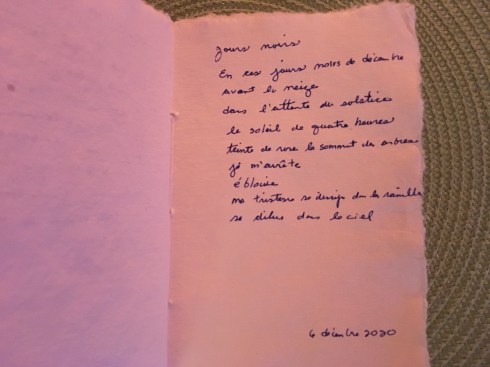 jours noirs
En ces jours noirs de décembre
avant la neige
dans l'attente du solstice
le soleil de quatre heures
teinte de rose le sommet des arbres
je m'arrête
éblouie
ma tristesse se dans la ramille
se dilue dans le ciel
6 décembre 2020